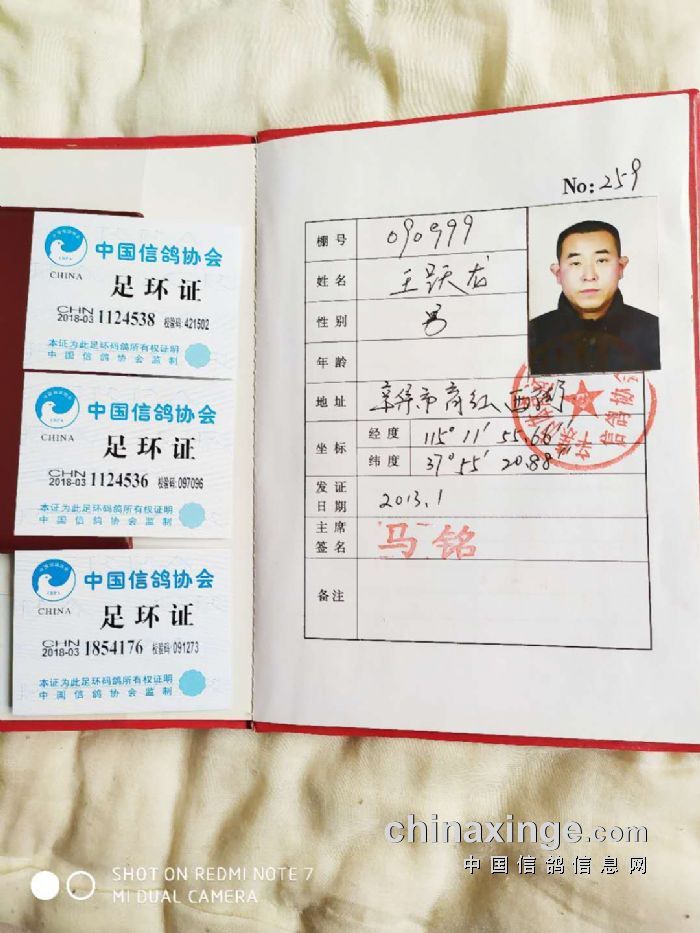 中国信鸽协会
CHINA
足环证
CHN
2018-03 1124538 校验码:421502
本证为此足环码鸽所有权证明
中国信鸽协会监制
中国信鸽协会
CHINA
足环证
CHN
2018-03 1124536 校验码:097096
本证为此足环码鸽所有权证明
中国信鸽协会监制
中国信鸽协会
CHINA
足环证
CHN
2018-03 1854176 校验码:091273
本证为此足环码鸽所有权证明
中国信鸽协会监制
No: 259
棚号 090999
姓名 王跃龙
性别 男
年龄
地址 辛集市商红西街
坐标 经度 115° 11′ 55.66″
纬度 37° 55′ 20.88″
发证日期 2013.1
主席签名 马铭
备注
信鸽协会
chinaxinge.com
中国信鸽信息网
SHOT ON REDMI NOTE 7
MI DUAL CAMERA